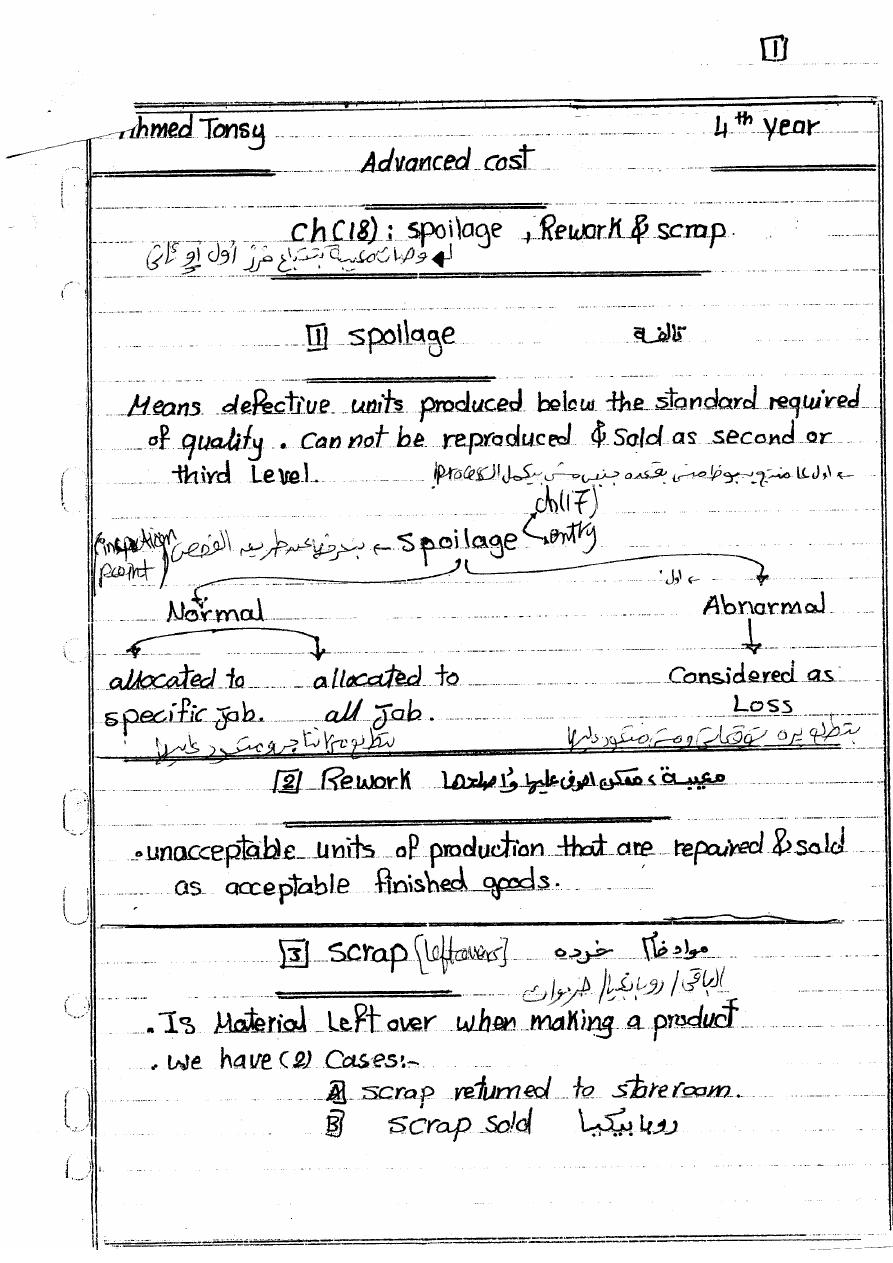 1
Ahmed Tonsy 4th year
Advanced cost
Ch(18): spoilage, Rework & scrap.
وحدات معيبة بتتباع فرز أول أو تاني
1 spoilage تالفة
Means defective units produced below the standard required
of quality. Can not be reproduced & Sold as second or
third Level.
ch(17)
(inspection point) spoilage entry
Normal Abnormal
allocated to allocated to Considered as
specific Job. all Job. Loss
2 Rework معيبة، ممكن اصرف عليها وأصلحها
• unacceptable units of production that are repaired & sold
as acceptable finished goods.
3 scrap [leftovers] مواد خام خردة
الباقي / روبابيكيا /
. Is Material Left over when making a product
. We have (2) Cases:-
A scrap returned to storeroom.
B scrap sold روبابيكيا